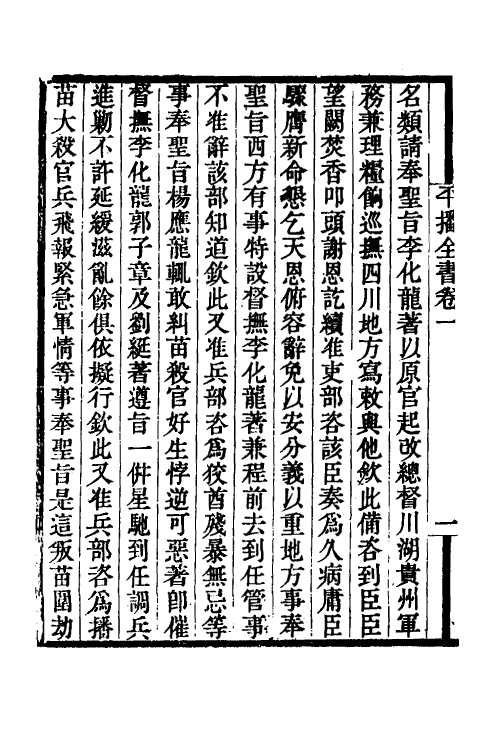 平播全書卷一
一
名類請奉聖旨李化龍著以原官起改總督川湖貴州軍
務兼理糧餉巡撫四川地方寫敕與他欽此備咨到臣臣
望闕焚香叩頭謝恩訖續准吏部咨該臣奏爲久病庸臣
驟膺新命懇乞天恩俯容辭免以安分義以重地方事奉
聖旨西方有事特設督撫李化龍著兼程前去到任管事
不准辭該部知道欽此又准兵部咨爲狡酋殘暴無忌等
事奉聖旨楊應龍輒敢糾苗殺官好生悖逆可惡著卽催
督撫李化龍郭子章及劉綎著遵旨一倂星馳到任調兵
進勦不許延緩滋亂餘俱依擬行欽此又准兵部咨爲播
苗大殺官兵飛報緊急軍情等事奉聖旨是這叛苗圍劫